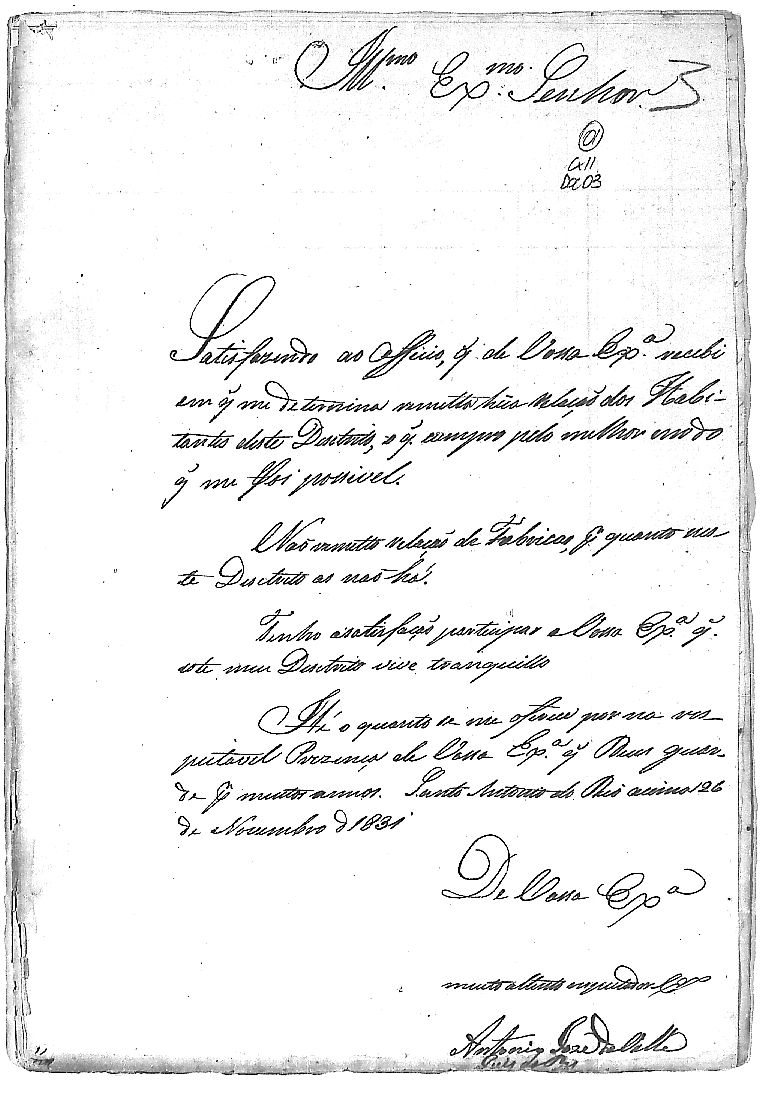 Illmo. Exmo. Senhor. 3
01
Cx 11
Dc 03
Satisfazendo ao Officio, q̃ de Vossa Exp.ª recebi
em q̃ me determina remetta hũa relação dos Habi-
tantes deste Districto, o q̃. cumpro pelo melhor modo
q̃ me foi possivel.
Não remetto relação de Fabricas, p̃ quanto nes-
te Districto as não há.
Tenho a satisfação participar a Vossa Exp.ª q̃.
este meu Districto vive tranquillo
Hé o quanto se me oferece por na res-
peitavel Prezença de Vossa Exp.ª q̃ Deus guar-
de p̃ muitos annos. Santo Antonio do Rio acima 26
de Novembro d 1831
De Vossa Exp.ª
muito attento respeitador
Antonio Jozé do Valle
Juiz de Paz